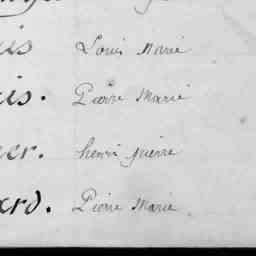 is Louis Marie
is. Pierre Marie
er. henri pierre
ard. Pierre Marie